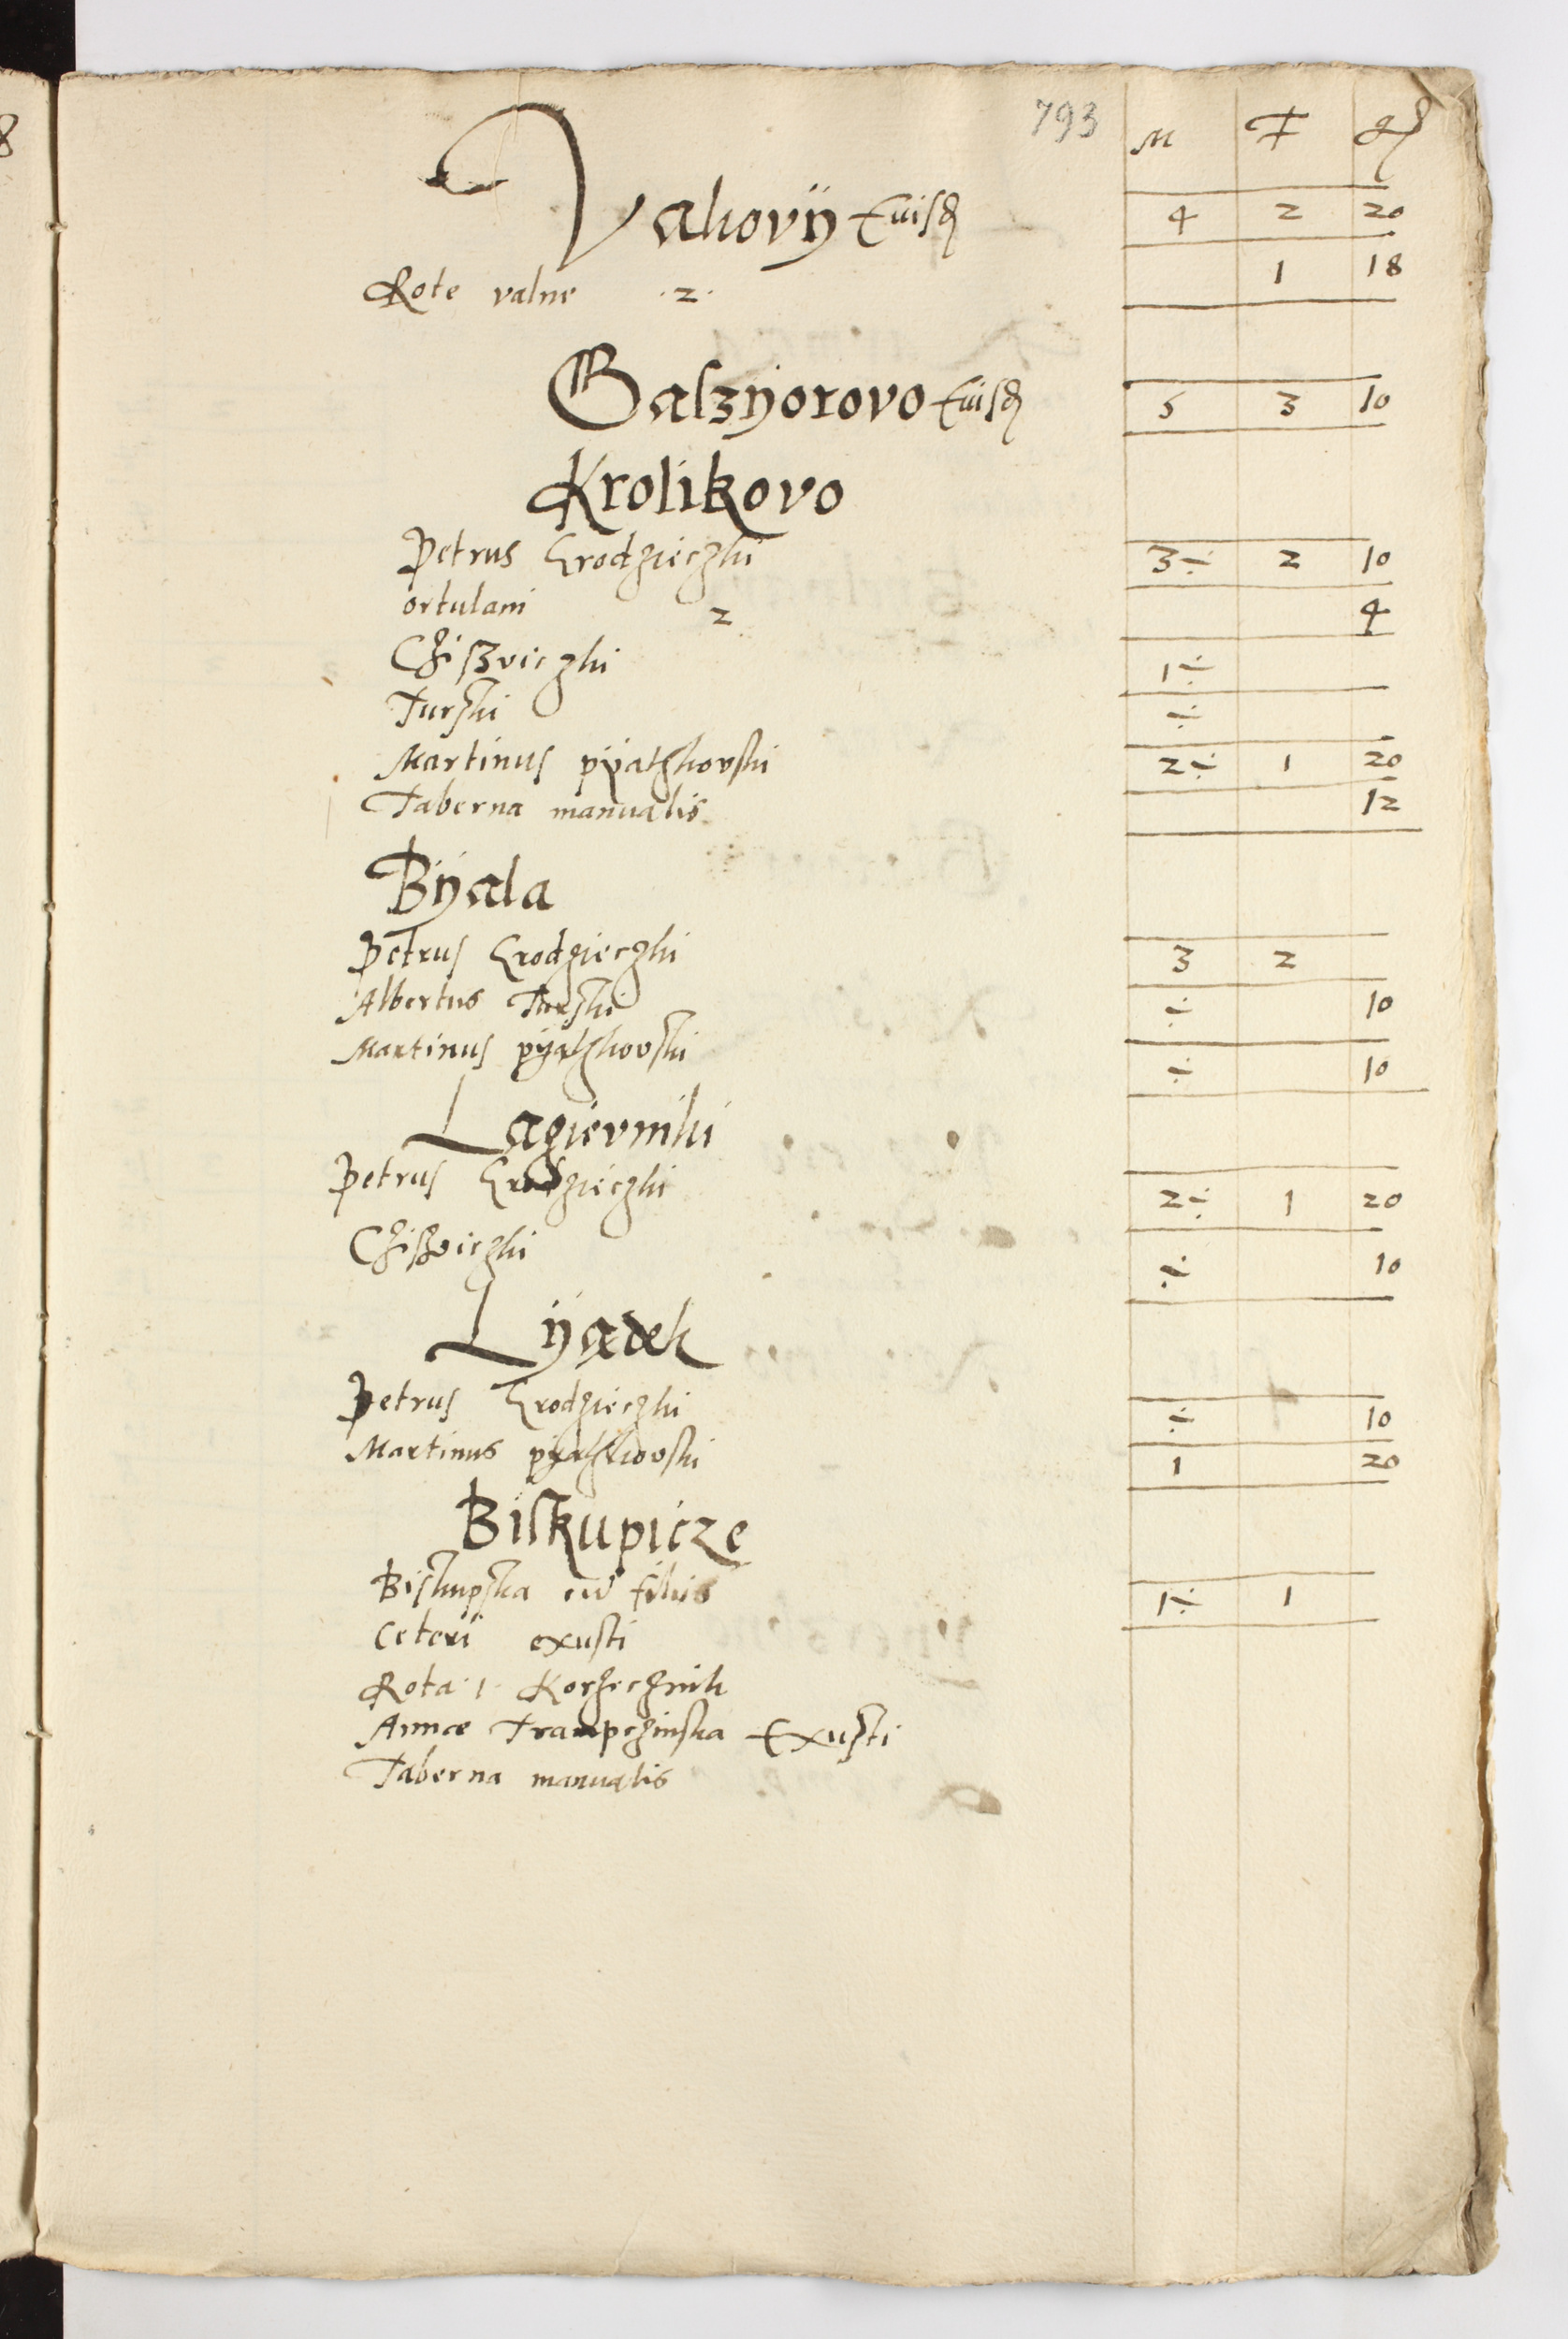 793 M F gr
Vakovÿ Eiusd 4 2 20
Rote valne .2. 1 18
Galzÿorovo Eiusd 5 3 10
Krolikovo
Petrus Grodzieczki 3÷ 2 10
ortulani 2 4
Czisvieczki 1÷
Turski ÷
Martinus pÿatkhovski 2÷ 1 20
Taberna manualis 12
Bÿala
Petrus Grodzieczki 3 2
Albertus Turski ÷ 10
Martinus pÿatkhovski ÷ 10
Lagievniki
Petrus Grodzieczki 2÷ 1 20
Czisvieczki ÷ 10
Lÿadek
Petrus Grodzieczki ÷ 10
Martinus pÿatkhovski 1 20
Biskupicze
Biskupska cu filiis 1÷ 1
Ceteri exusti
Rota 1 Korzecznik
Annæ Trampczinska Exusti
Taberna manualis